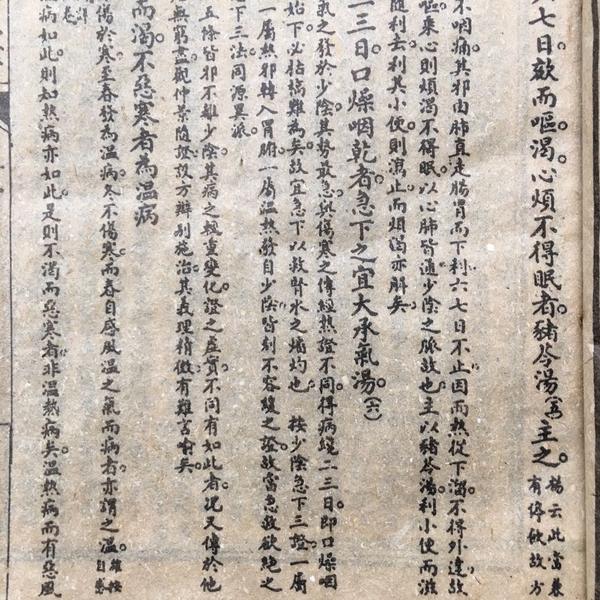 六七日欬而嘔渴。心煩不得眠者。豬苓湯主之。楊云此當兼
有停飲故方
不咽痛其邪由肺直走腸胃而下利六七日不止因而熱從下溜。不得外達故
嘔乘心則煩渴不得眠。以心肺皆通少陰之脈故也。主以豬苓湯利小便而滋
隨利去。利其小便則瀉止而煩渴亦解矣。
二三日口燥咽乾者。急下之宜大承氣湯。(六)
氣之發於少陰其勢敢急與傷寒之傳經熱證不同得病纔二三日即口燥咽
始下必枯槁難為矣故宜急下以救腎水之燔灼也 按少陰急下三證一屬
一屬熱邪轉入胃腑一屬溫熱發自少陰皆刻不容緩之證故當急救欲絕之
下三法同源異派。
五條皆邪不離少陰其病之輕重變化證之虛實不同有如此者。況又傳於他
無窮盡觀仲景隨證設方辨別施治其義理精微有難言喻矣。
而渴不惡寒者為溫病
傷於寒至春發為溫病。冬不傷寒。而春自感風溫之氣而病者。亦謂之溫。雄按
自感
病如此。則知熱病亦如此。是則不渴而惡寒者。非溫熱病矣。溫熱病而有惡風